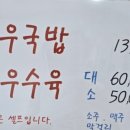 우국밥 13
우수육 대 60,
소 50,
은 셀프입니다.
소주·맥주
막걸리